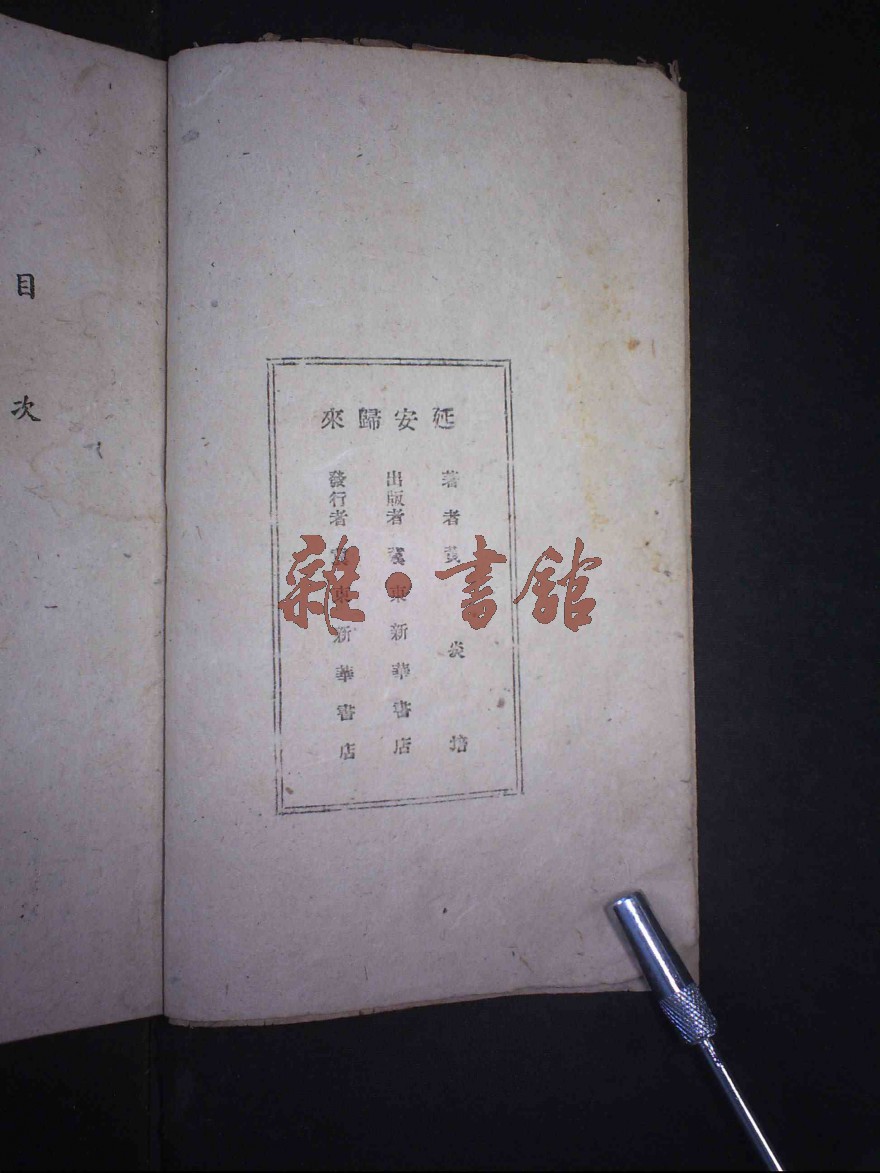 延安歸來
著者 黃炎培
出版者 冀東新華書店
發行者 冀東新華書店
目次
雜·書館